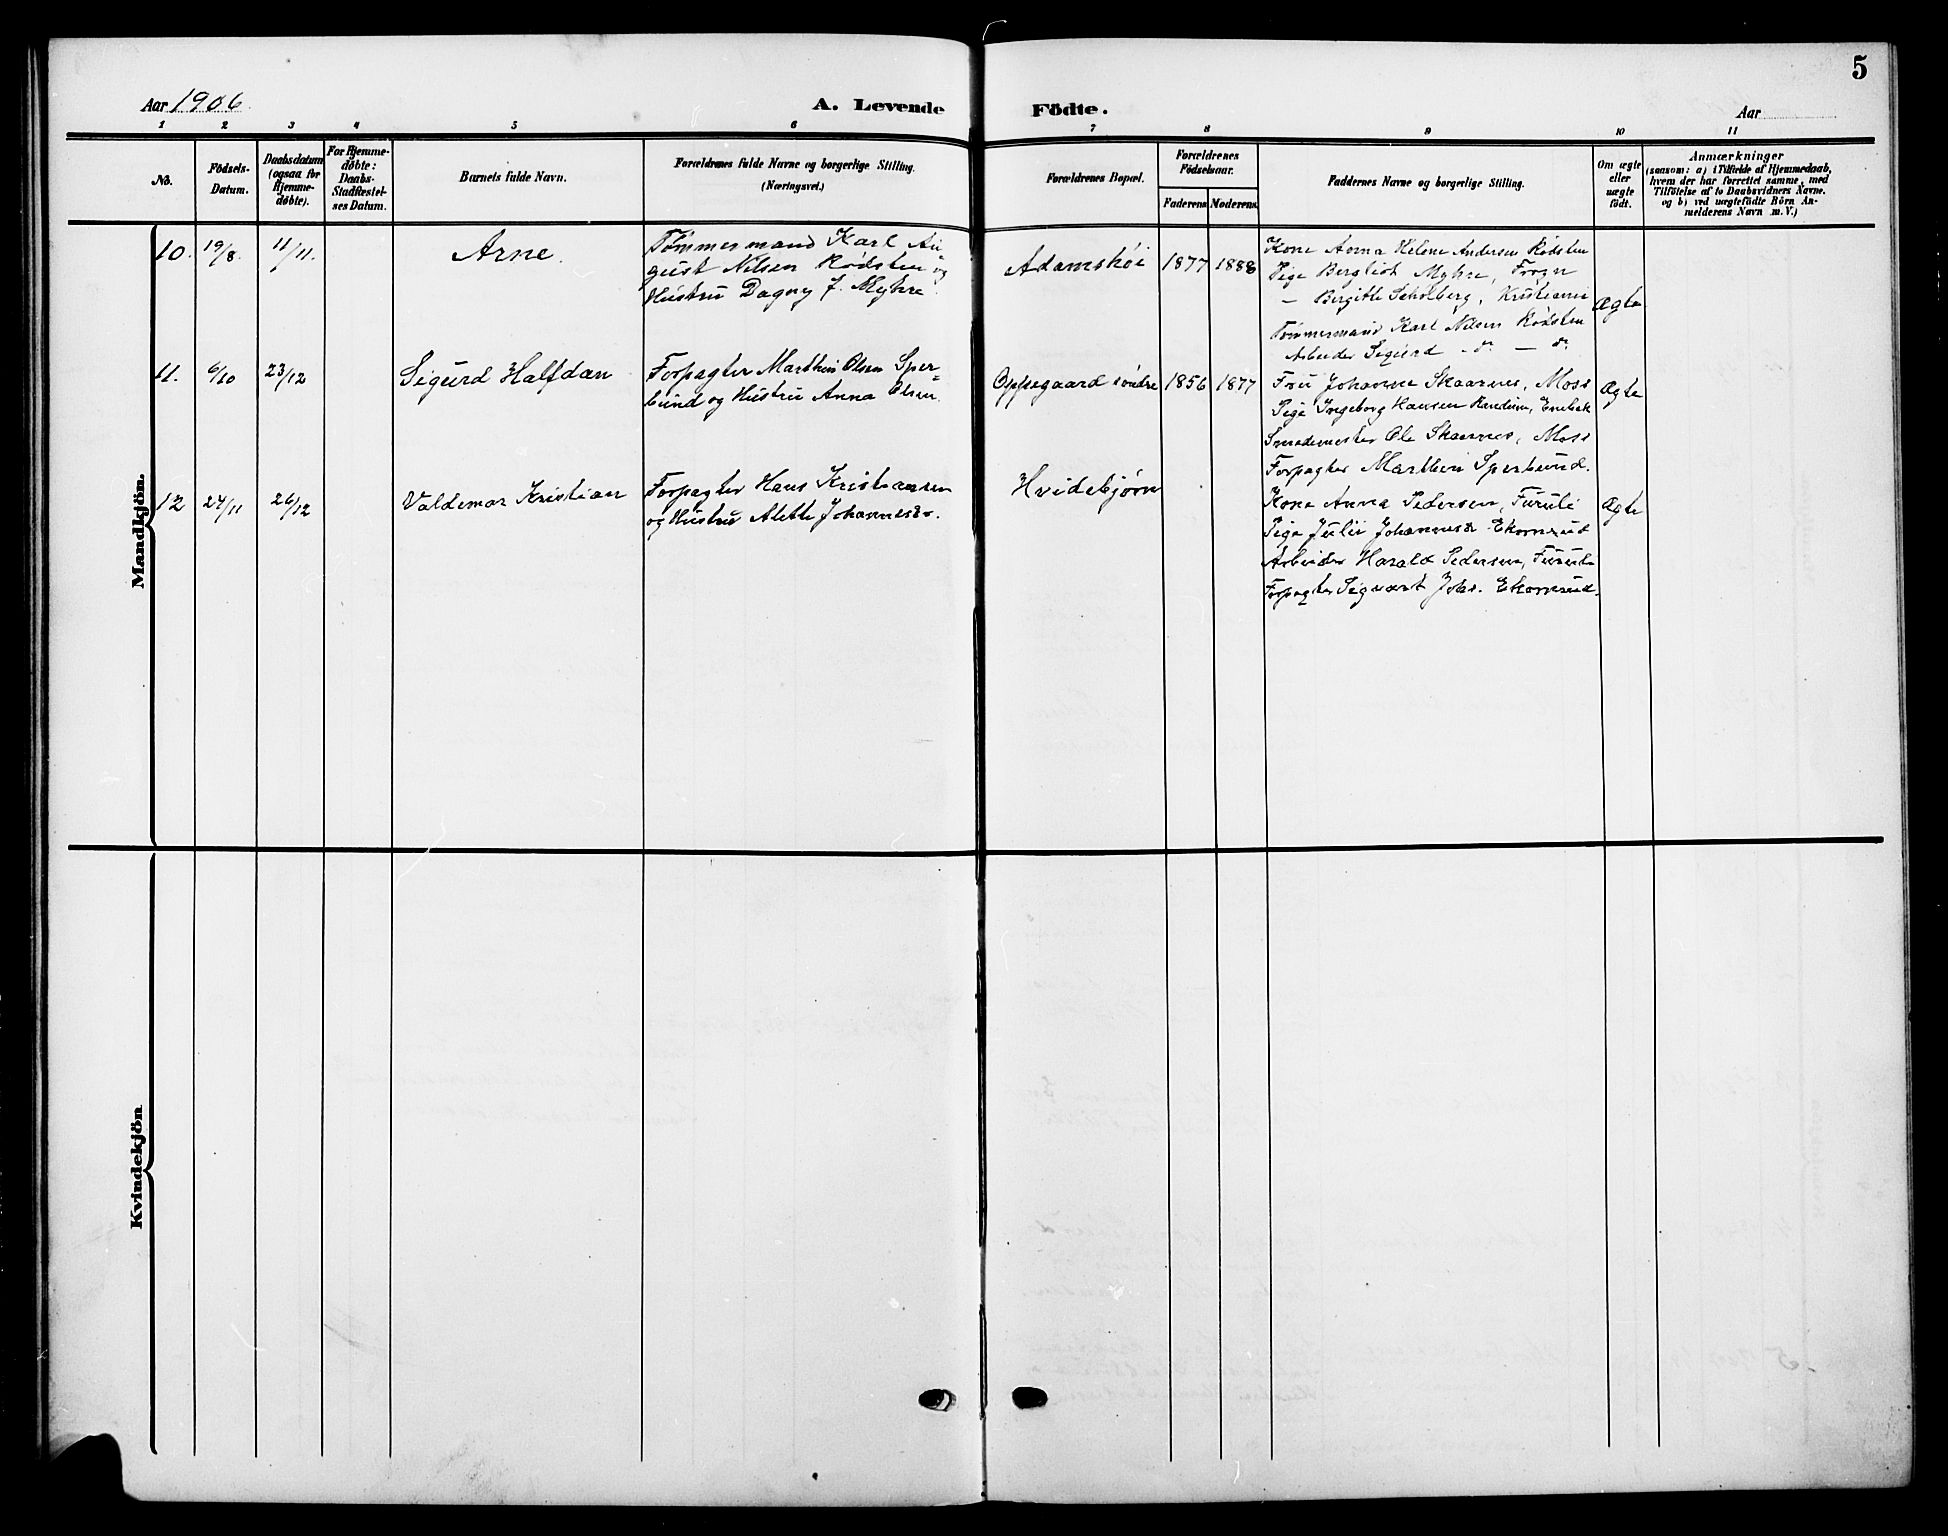 5
Aar 1906
A. Levende Födte.
Aar
1 2 3 4 5 6 7 8 9 10 11
No.
Födsels-
Datum.
Daabsdatum
(ogsaa for
Hjemme-
døbte).
For Hjemme-
døbte:
Daabs-
Stadfæstel-
ses Datum.
Barnets fulde Navn.
Forældrenes fulde Navne og borgerlige Stilling.
(Næringsvei.)
Forældrenes Bopæl.
Forældrenes
Födselsaar.
Faderens
Moderens
Faddernes Navne og borgerlige Stilling.
Om ægte
eller
uægte
födt.
Anmærkninger
(saasom: a) i Tilfælde af Hjemmedaab,
hvem der har forrettet samme, med
Tilföielse af to Daabsvidners Navne.
og b) ved uægtefödte Börn An-
melderens Navn m. V.)
Mandkjön.
10. 19/8. 11/11. Arne.
Tømmermand Karl Au
gust Nilsen Rødsten og
Hustru Dagny f. Myhre
Adamskøi 1877 1888
Kone Anna Helene Andersen Rødsten
Pige Bergliot Myhre, Frogn
— Bergitte Scholberg, Kristiania
Tømmermand Karl Nilsen Rødsten
Arbeider Sigurd do — do
Ægte
11. 6/10 23/12 Sigurd Halfdan
Forpagter Marthin Olsen Sper=
bund og Hustru Anna Olsen.
Oppegaard söndre 1856 1877
Fru Johanne Skaarnes, Moss
Pige Ingeborg Hansen, Enebak
Smedemester Ole Skaarnes, Moss
Forpagter Marthin Sperbund.
Ægte
12 24/11 26/12 Valdemar Kristian
Forpagter Hans Kristiansen
og Hustru Alette Johannesdr.
Hvidebjørn
Kone Anna Pedersen, Furuli
Pige Julie Johannesdr Ekornrud
Arbeider Harald Pedersen, Furuli
Forpagter Sigvart Johs. Ekornrud.
Ægte
Kvindekjön